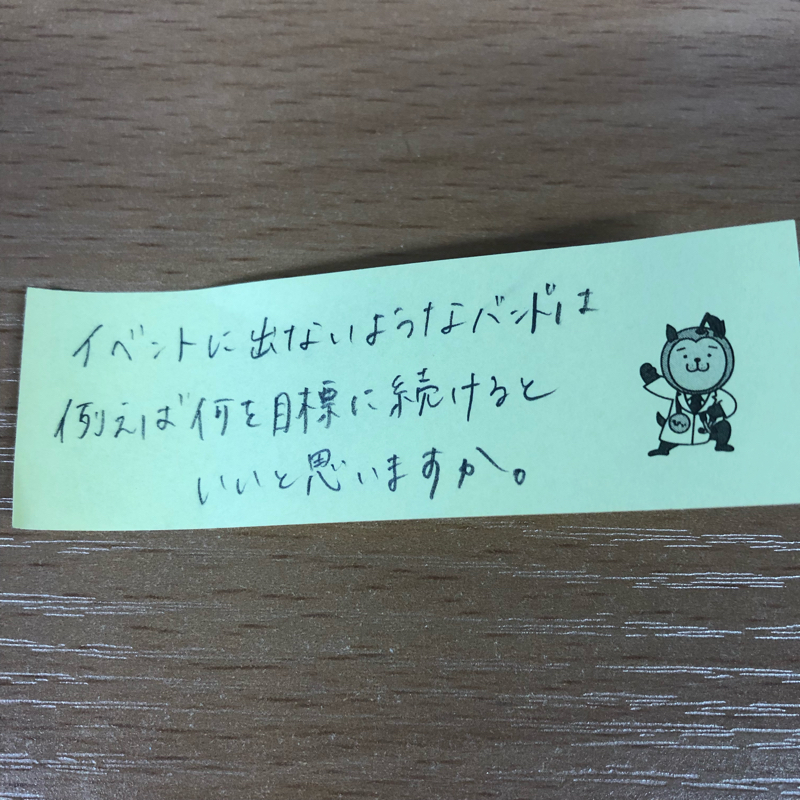 イベントに出ないようなバンドは
例えば何を目標に続けると
いいと思いますか。